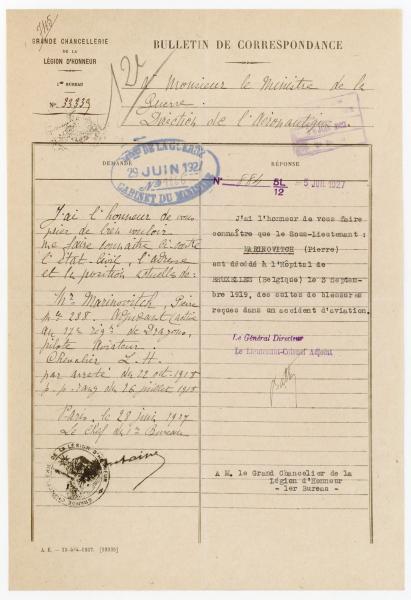 GRANDE CHANCELLERIE
DE LA
LÉGION D'HONNEUR
1er BUREAU
No. 33339
BULLETIN DE CORRESPONDANCE
Monsieur le Ministre de la
Guerre.
Direction de l'Aéronautique
DEMANDE
RÉPONSE
DE LA GUERRE
29 JUIN 1927
CABINET DU MINISTRE
No 884 5L/12 -5 JUIL 1927
J'ai l'honneur de vous
prier de bien vouloir
me faire connaître ci-contre
l'Etat-Civil, l'adresse
et la position actuelles de:
Mr. Marinovitch, Pierre
Mle 238. Adjudant
au 27e rég. de Dragons,
pilote Aviateur.
Chevalier L.H.
par arrêté du 22 oct. 1918
p. p. rang du 26 juillet 1918
Paris, le 28 juin 1927
Le Chef du 1er Bureau
J'ai l'honneur de vous faire
connaître que le Sous-Lieutenant :
MARINOVITCH (Pierre)
est décédé à l'Hôpital de
BRUXELLES (Belgique) le 3 Septem-
bre 1919, des suites de blessures
reçues dans un accident d'aviation.
Le Général Directeur
Le Lieutenant-Colonel Adjoint
A M. le Grand Chancelier de la
Légion d'Honneur
- 1er Bureau -